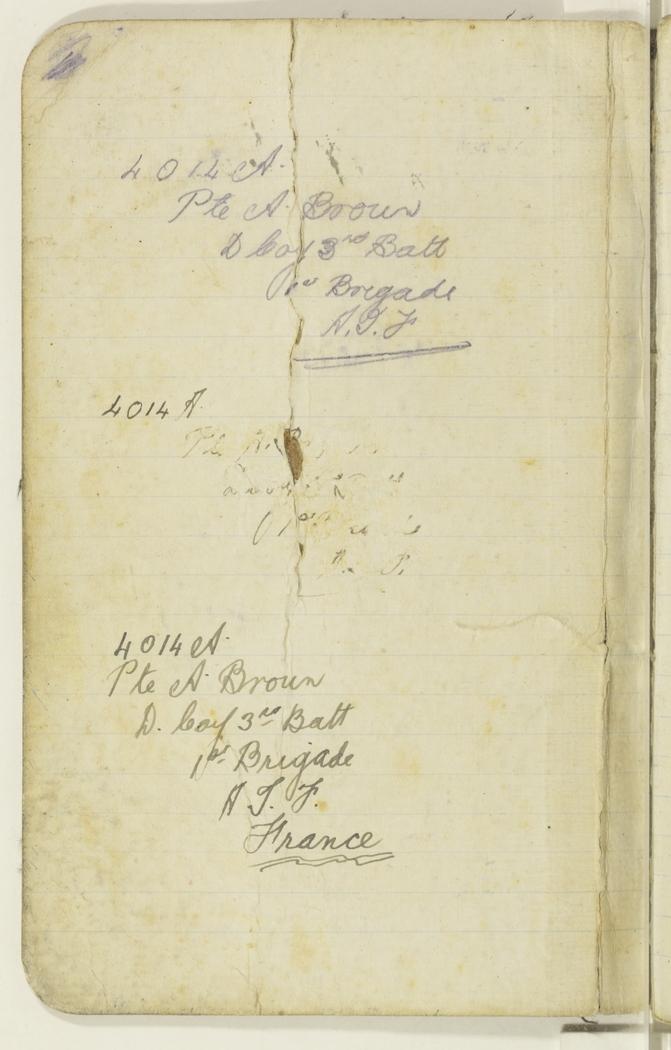 4014 A.
Pte A. Brown
D Coy 3rd Batt
1st Brigade
A.I.F
4014 A.
Pte A.
1st
4014 A.
Pte A. Brown
D. Coy 3rd Batt
1st Brigade
A I. F.
France